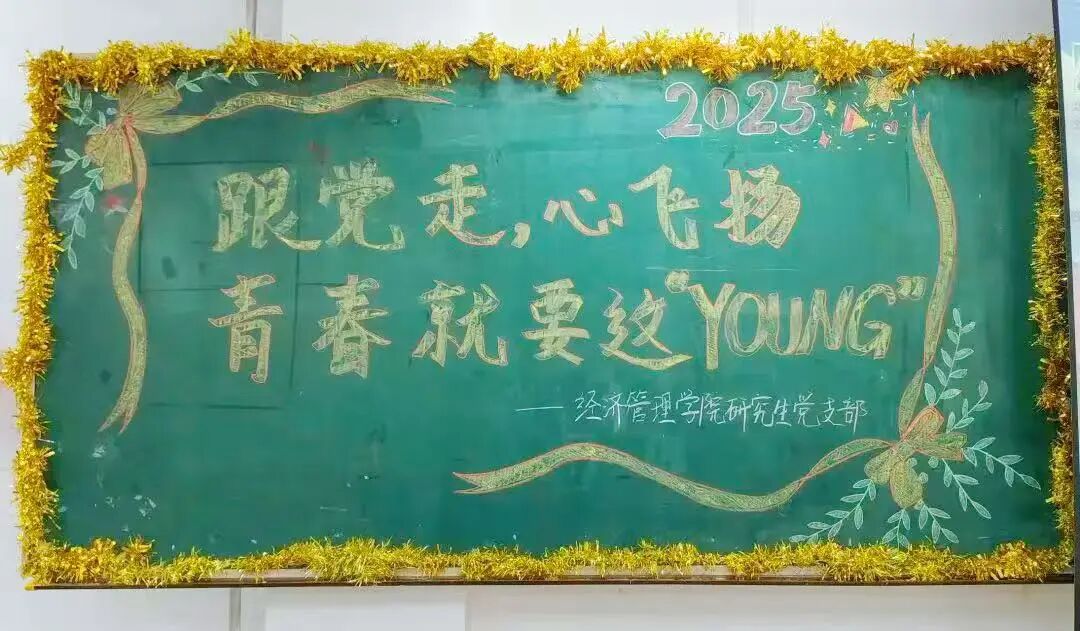 2025
跟党走,心飞扬
青春就要这"YOUNG"
——经济管理学院研究生党支部